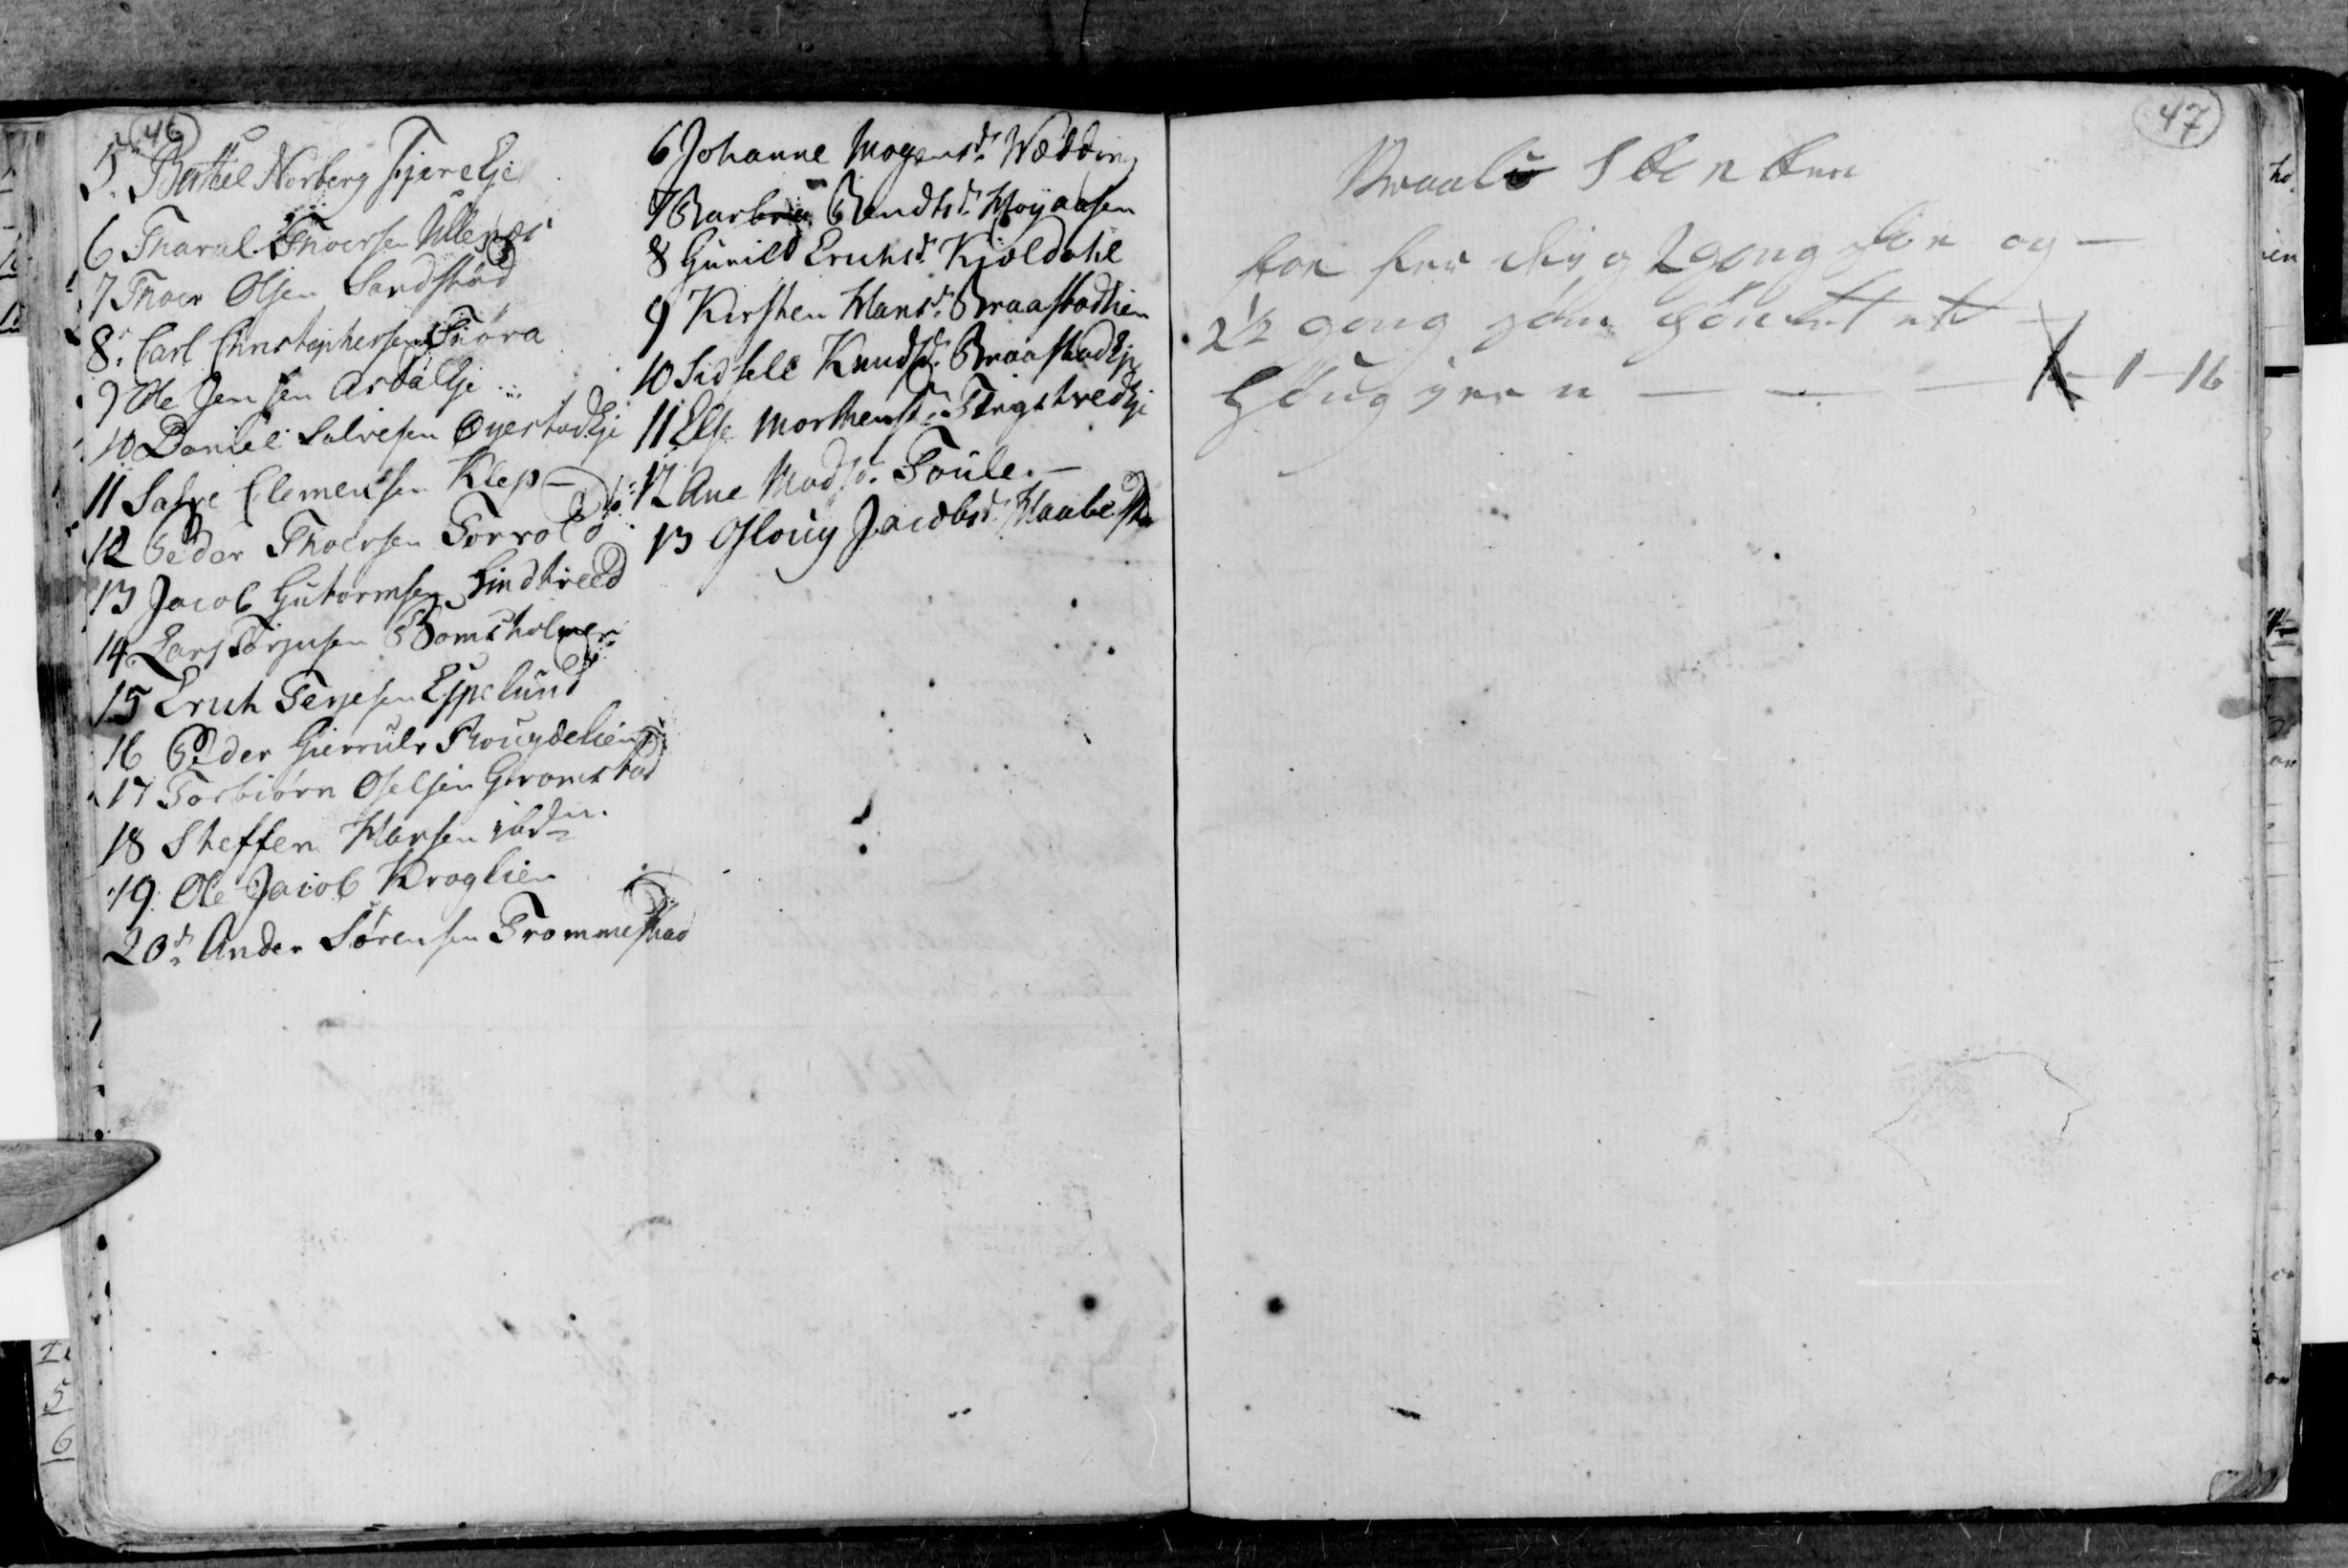 46
5. Berthel Norberg Fjære Eje
6 Tharal Thoersen Ullenæs
7 Thoer Olsen Sandstød
8. Carl Christophersen Trøra
9 Ole Jensen Asdal Eje
10 Daniel Salvesen Øyestad Eje
11 Salve Clemensen Klep —
12 Peder Thoersen Torvold
13 Jacob Gutormsen Lindtveed
14 Lars Torjusen Bomsholmen
15 Erich Terjesen Espelund
16 Peder Gierruls Thougdelien
17 Torbiörn Oselsen Gromstad
18 Steffen Hansen ibdm
19 Ole Jacob Kroglien
20d Ander Sörensen Trommestad
6 Johanne Mogensd. Wedding
7 Barbra Bendtsd. Høyaasen
8 Gunild Erichsd. Kjoldahl
9 Kirsten Hansd. Braastadlien
10 Sidsele Knudsd. Braastad Eje
11 Else Morthensd. Fiigstved Eje
12 Ane Madsd. Soule. —
13 Osloug Jacobsd. Haabesta
47
for og —
2 1/2 gong
— — — 1 — 16